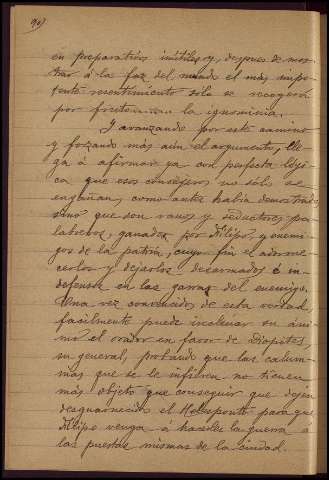 90
en preparativos inútiles y, después de mos-
trar á la faz del mundo el más impo-
tente resentimiento sólo se recogerá
por fruto la ignominia.
Y avanzando por este camino
y forzando más aún el argumento, lle-
ga á afirmar ya con perfecta lógi-
ca que esos consejeros no sólo se
engañan, como antes había demostrado,
sino que son vanos y seductores pa-
labreros, ganados por Filipo, y enemi-
gos de la patria, cuyo fin es adorme-
cerlos y dejarlos descarnados é in-
defensos en las garras del enemigo.
Una vez convencidos de esta verdad,
facilmente puede inclinar su áni-
mo el orador en favor de Diopites,
su general, probando que las calum-
nias que se le infieren no tienen
más objeto que conseguir que dejen
desguarnecido el Helesponto para que
Filipo venga á hacerles la guerra á
las puertas mismas de la ciudad.